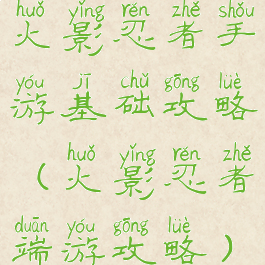 huǒ yǐng rěn zhě shǒu
火影忍者手
yóu jī chǔ gōng lüè
游基础攻略
huǒ yǐng rěn zhě
（火影忍者
duān yóu gōng lüè
端游攻略）